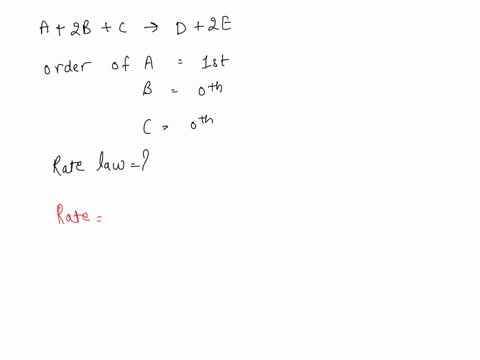 A + 2B + C → D + 2E
order of A = 1st
B = 0th
C = 0th
Rate law = ?
Rate =